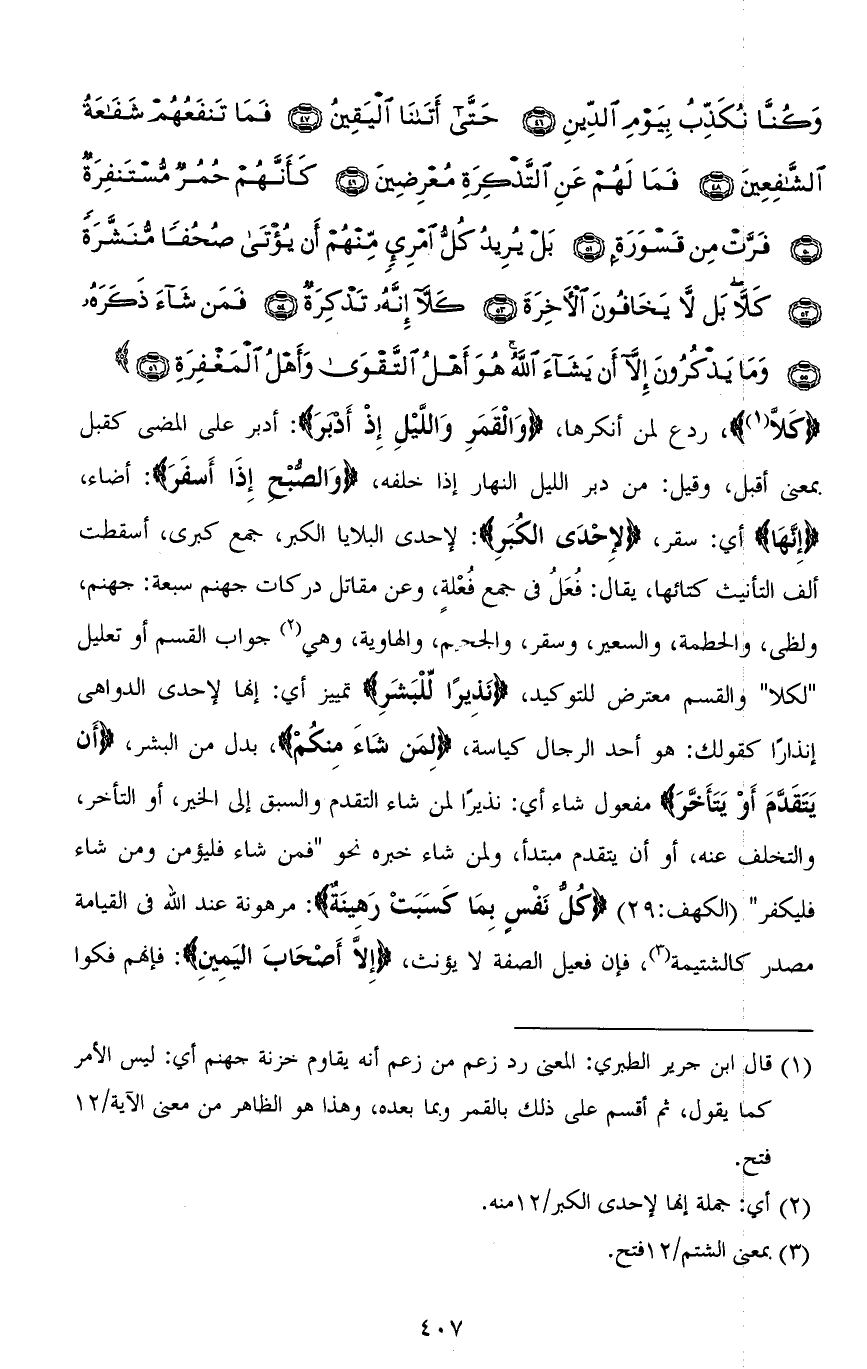 وَكُنَّا نُكَذِّبُ بِيَوْمِ ٱلدِّينِ ٤٦ حَتَّىٰٓ أَتَىٰنَا ٱلْيَقِينُ ٤٧ فَمَا تَنفَعُهُمْ شَفَـٰعَةُ
ٱلشَّـٰفِعِينَ ٤٨ فَمَا لَهُمْ عَنِ ٱلتَّذْكِرَةِ مُعْرِضِينَ ٤٩ كَأَنَّهُمْ حُمُرٌ مُّسْتَنفِرَةٌ
٥٠ فَرَّتْ مِن قَسْوَرَةٍ ٥١ بَلْ يُرِيدُ كُلُّ ٱمْرِئٍ مِّنْهُمْ أَن يُؤْتَىٰ صُحُفًا مُّنَشَّرَةً
٥٢ كَلَّا ۖ بَل لَّا يَخَافُونَ ٱلْأَخِرَةَ ٥٣ كَلَّآ إِنَّهُۥ تَذْكِرَةٌ ٥٤ فَمَن شَآءَ ذَكَرَهُۥ
٥٥ وَمَا يَذْكُرُونَ إِلَّآ أَن يَشَآءَ ٱللَّهُ ۚ هُوَ أَهْلُ ٱلتَّقْوَىٰ وَأَهْلُ ٱلْمَغْفِرَةِ ٥٦ ﴾
﴿كَلاَّ(١)﴾، ردع لمن أنكرها، ﴿وَالْقَمَرِ وَاللَّيْلِ إِذْ أَدْبَرَ﴾: أدبر على المضى كقبل
بمعنى أقبل، وقيل: من دبر الليل النهار إذا خلفه، ﴿وَالصُّبْحِ إِذَا أَسفَرَ﴾: أضاء،
﴿إِنَّهَا﴾ أي: سقر، ﴿لإِحْدَى الكُبَرِ﴾: لإحدى البلايا الكبر، جمع كبرى، أسقطت
ألف التأنيث كتائها، يقال: فُعَلُ فى جمع فُعْلةٍ، وعن مقاتل دركات جهنم سبعة: جهنم،
ولظى، والحطمة، والسعير، وسقر، والجحيم، والهاوية، وهي(٢) جواب القسم أو تعليل
"لكلا" والقسم معترض للتوكيد، ﴿نَذِيرًا لِّلْبَشَرِ﴾ تمييز أي: إنها لإحدى الدواهى
إنذارًا كقولك: هو أحد الرجال كياسة، ﴿لِمَن شَاءَ مِنكُمْ﴾، بدل من البشر، ﴿أَن
يَتَقَدَّمَ أَوْ يَتَأَخَّرَ﴾ مفعول شاء أي: نذيرًا لمن شاء التقدم والسبق إلى الخير، أو التأخر،
والتخلف عنه، أو أن يتقدم مبتدأ، ولمن شاء خبره نحو "فمن شاء فليؤمن ومن شاء
فليكفر" (الكهف:٢٩) ﴿كُلُّ نَفْسٍ بِمَا كَسَبَتْ رَهِينَةٌ﴾: مرهونة عند الله فى القيامة
مصدر كالشتيمة(٣)، فإن فعيل الصفة لا يؤنث، ﴿إِلاَّ أَصْحَابَ اليَمِينِ﴾: فإنهم فكوا
(١) قال ابن جرير الطبري: المعنى رد زعم من زعم أنه يقاوم خزنة جهنم أي: ليس الأمر
كما يقول، ثم أقسم على ذلك بالقمر وبما بعده، وهذا هو الظاهر من معنى الآية/١٢
فتح.
(٢) أي: جملة إنها لإحدى الكبر/١٢منه.
(٣) بمعنى الشتم/١٢فتح.
٤٠٧